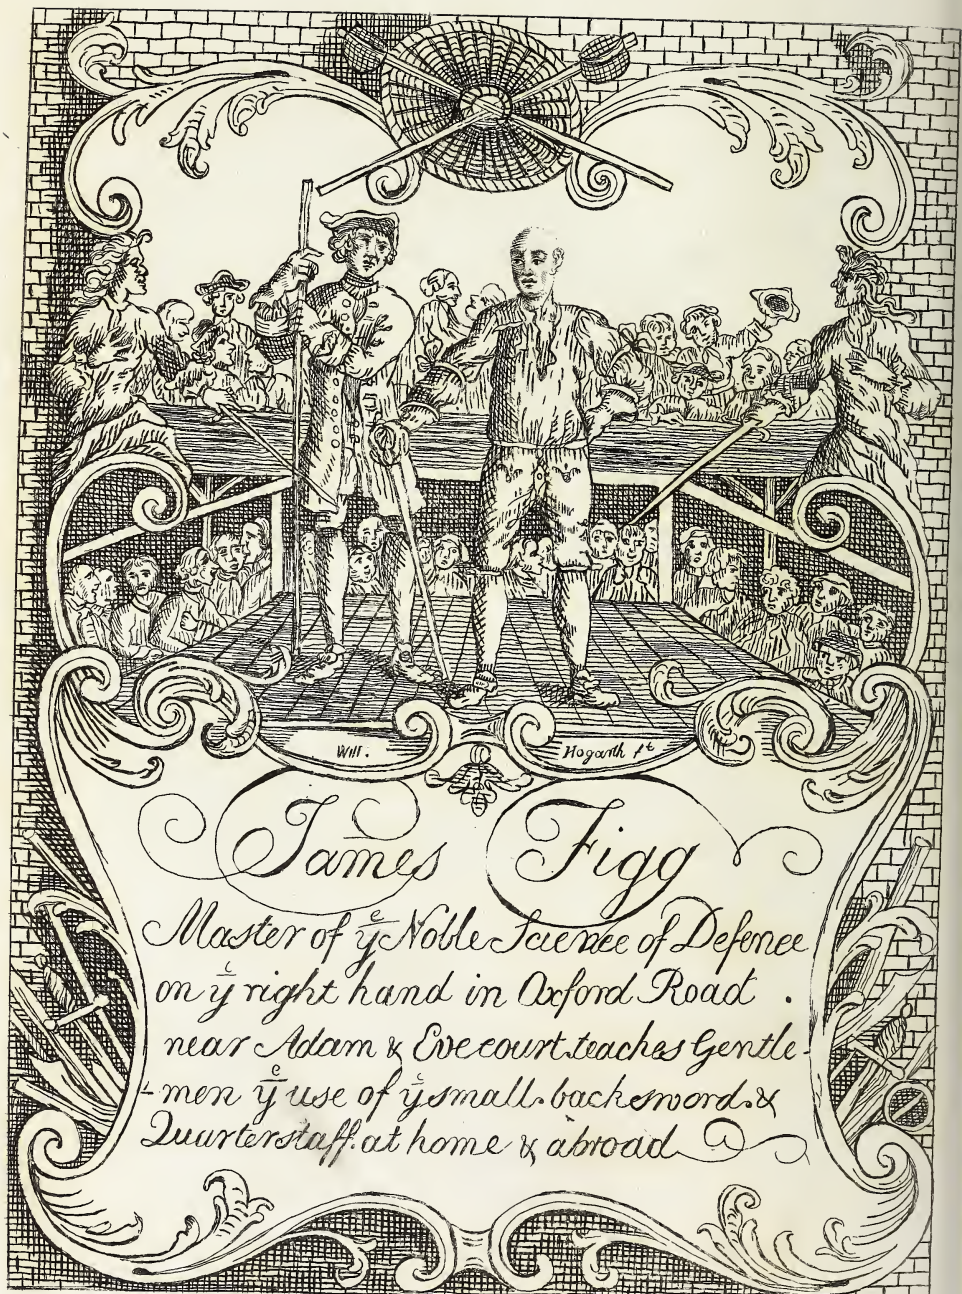 Will. Hogarth ft
James Figg
Master of yᵉ Noble Science of Defence
on yᵉ right hand in Oxford Road .
near Adam & Eve court teaches Gentle-
-men yᵉ use of yᵉ small. backsword. &
Quarterstaff. at home & abroad